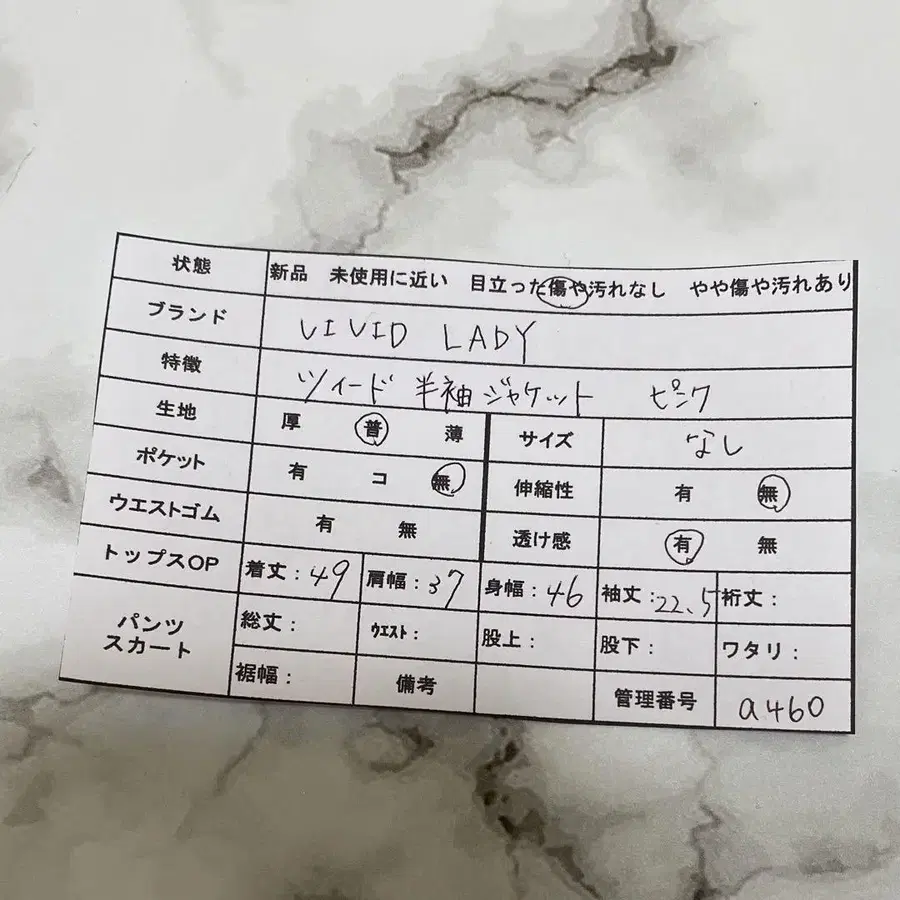 状態 新品 未使用に近い 目立った傷や汚れなし やや傷や汚れあり
ブランド VIVID LADY
特徴 ツイード 半袖ジャケット ピンク
生地 厚 普 薄 サイズ なし
ポケット 有 コ 無 伸縮性 有 無
ウエストゴム 有 無 透け感 有 無
トップスOP 着丈:49 肩幅:37 身幅:46 袖丈:22.5 裄丈:
パンツ スカート 総丈: ウエスト: 股上: 股下: ワタリ:
裾幅: 備考 管理番号 a460